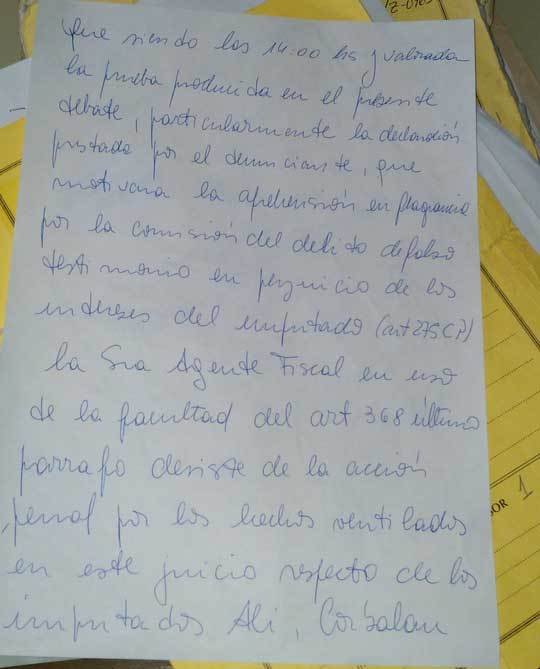 Que siendo las 14:00 hs y valorada
la prueba producida en el presente
debate, particularmente la declaración
prestada por el denunciante, que
motivara la aprehensión en flagrancia
por la comisión del delito de falso
testimonio en perjuicio de los
intereses del imputado (art 275 CP)
la Sra Agente Fiscal en uso
de la facultad del art 368 último
parrafo desiste de la acción
penal por los hechos ventilados
en este juicio respecto de los
imputados Ali, Corbalan
OR 1